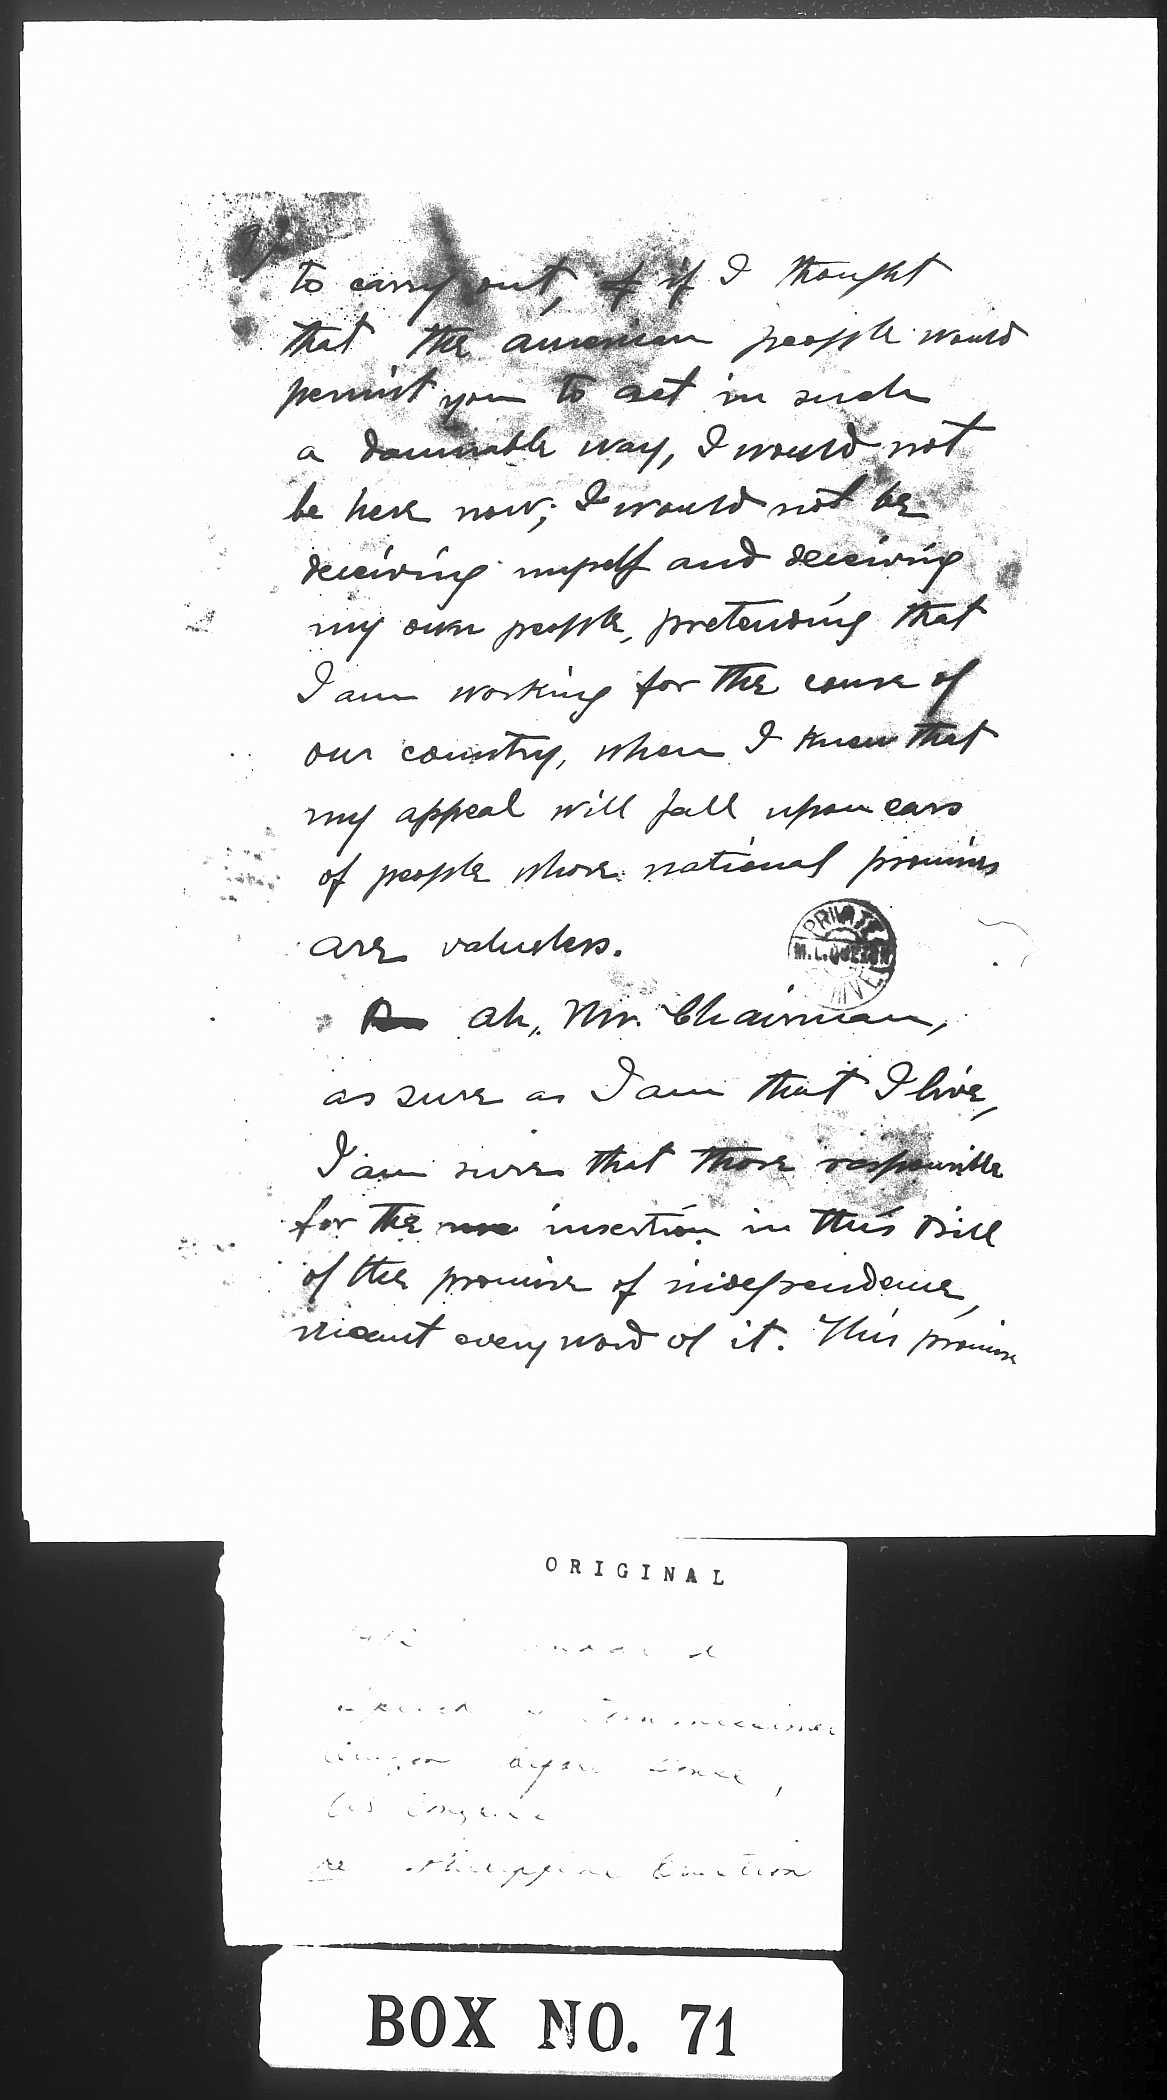 to carry out, if I thought
that the American people would
permit you to act in such
a damnable way, I would not
be here now; I would not be
deceiving myself and deceiving
my own people, pretending that
I am working for the cause of
our country, when I knew that
my appeal will fall upon ears
of people whose national promises
are valueless.
PRIVATE
M. L. QUEZON
Ah, Mr. Chairman,
as sure as I am that I live,
I am sure that those responsible
for the insertion in this Bill
of the promise of independence,
meant every word of it. This promise
ORIGINAL
Speech Commissioner
Quezon before
Congress
re Philippine Question
BOX NO. 71